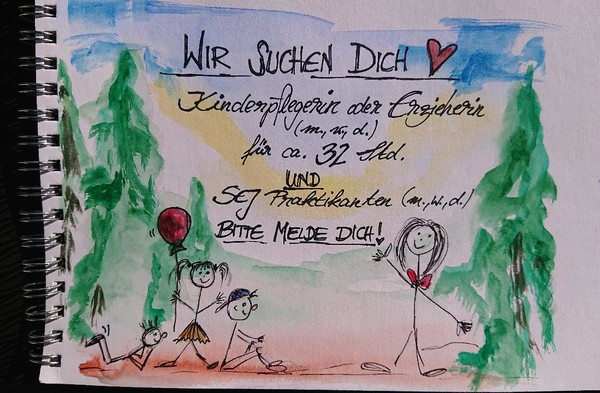 WIR SUCHEN DICH
Kinderpflegerin oder Erzieherin
(m, w, d.)
für ca. 32 Std.
UND
SEJ Praktikanten (m., w., d.)
BITTE MELDE DICH!